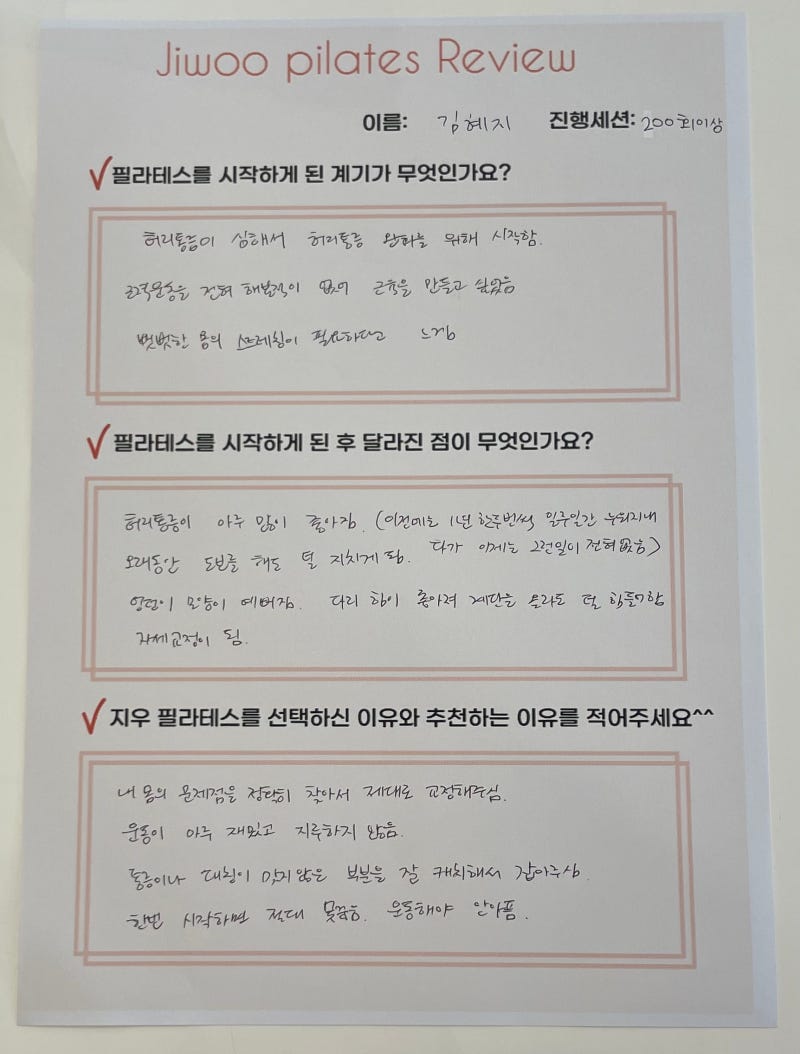 Jiwoo pilates Review
이름: 김혜지 진행세션: 200회이상
필라테스를 시작하게 된 계기가 무엇인가요?
허리통증이 심해서 허리통증 완화를 위해 시작함.
근력운동을 전혀 해본적이 없어 근육을 만들고 싶었음
뻣뻣한 몸의 스트레칭이 필요하다고 느낌
필라테스를 시작하게 된 후 달라진 점이 무엇인가요?
허리통증이 아주 많이 좋아짐. (이전에는 1년 한두번씩 일주일간 누워지내
다가 이제는 그런일이 전혀없음)
오래동안 도보를 해도 덜 지치게 됨.
엉덩이 모양이 예뻐짐. 다리 힘이 좋아져 계단을 올라도 덜 힘들어함
자세교정이 됨.
지우 필라테스를 선택하신 이유와 추천하는 이유를 적어주세요^^
내 몸의 문제점을 정확히 찾아서 제대로 교정해주심.
운동이 아주 재밌고 지루하지 않음.
통증이나 대칭이 맞지않은 부분을 잘 캐치해서 잡아주심.
한번 시작하면 절대 못끊음. 운동해야 안아픔.